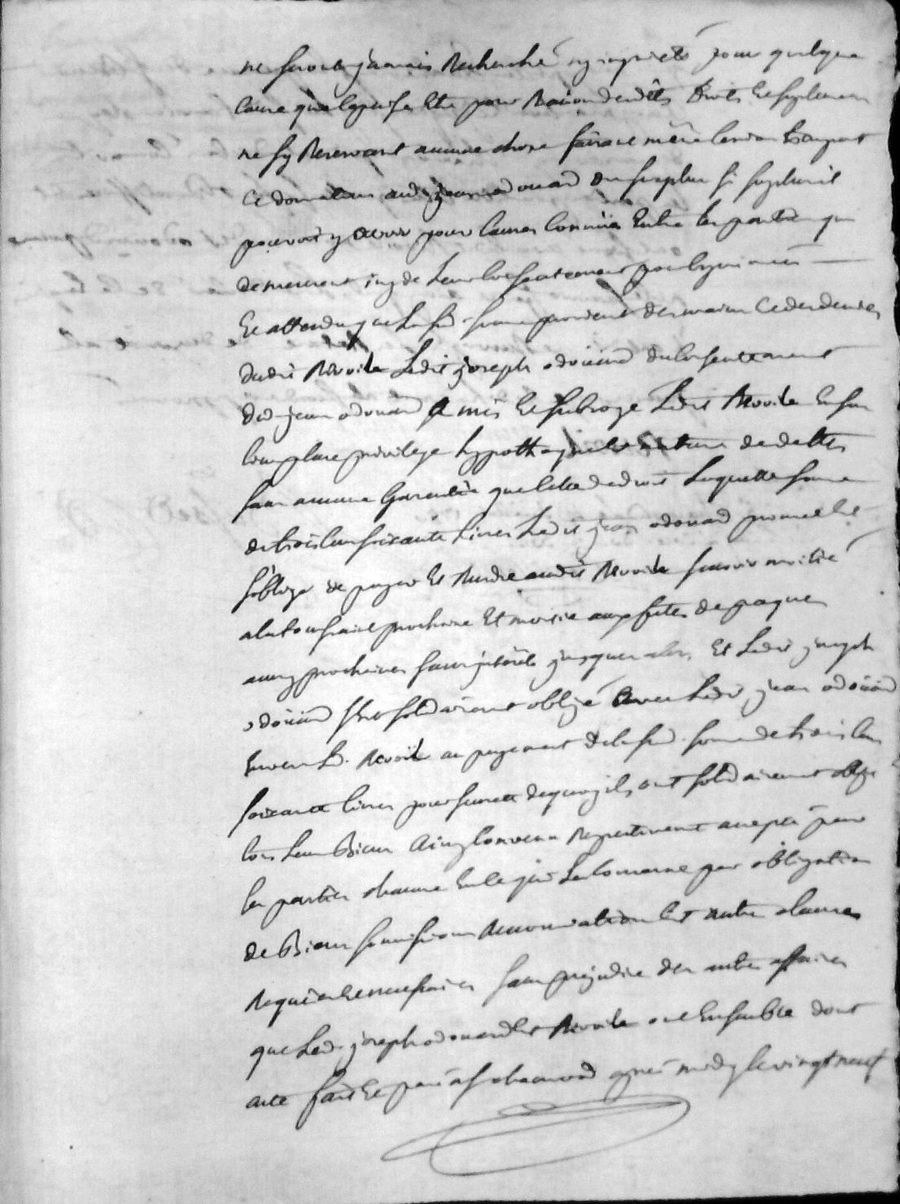 ne seront jamais Recherché ny inquieté pour quelque
cause que ce puisse Etre pour Raison desdits droits Et suplement
ne sy Reservant aucune chose faisant même
Ce donation audit jean odouard du surplus si surplus il
pouvoit y avoir pour causes Connües Entre les parties qui
demeurent
Et attendu que lad. somme provient des mains Et des deniers
dudit Revoile Ledit joseph odoüard du Consentement
dud. jean odouard a mis Et subrogé Ledit Revoile En son
lieu place privilege hypotheque Et nature de dette
sans aucune Garentie que celle de droit Laquelle somme
de trois Cens soixante Livres Ledit jean odouard promet Et
s'oblige de payer Et Rendre audit Revoile sçavoir moitié
a la toussaint prochaine Et moitié aux fetes de paques
aussy prochaines sans jnterets jusques alors Et Ledit joseph
odoüard s'Est solidairement obligé avec Ledit jean odoüard
Envers led. Revoile au payement de lad. somme de trois Cens
soixante livres pour sureté dequoy ils ont solidairement obligé
tous Leurs Biens Ainsy Convenu Respectivement accepté par
les parties chacune En ce qui La Concerne par obligation
de Biens soumissions Renonciations Et autres clauses
Requises Et necessaires sans prejudice des autres affaires
que Led. joseph odouard Et Revoile ont Ensemble dont
acte fait Et passé a apres midy le vingt neuf